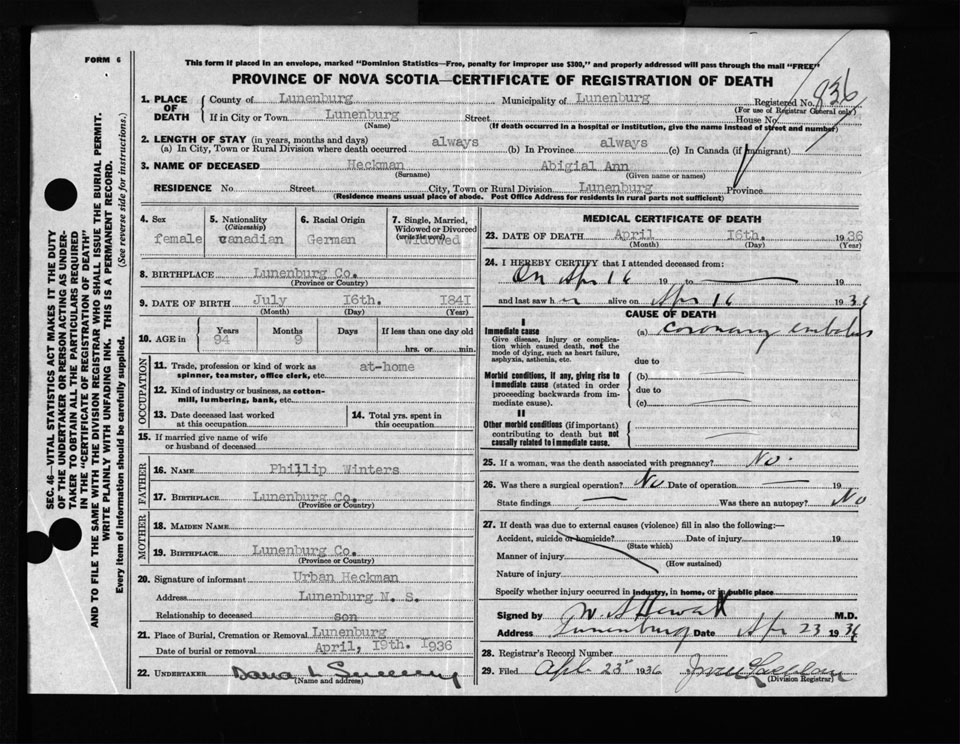 FORM 6
This form if placed in an envelope, marked "Dominion Statistics—Free, penalty for improper use $300," and properly addressed will pass through the mail "FREE"
PROVINCE OF NOVA SCOTIA—CERTIFICATE OF REGISTRATION OF DEATH
1. PLACE OF DEATH
County of Lunenburg Municipality of Lunenburg Registered No. 936
(For use of Registrar General only)
If in City or Town Lunenburg Street House No
(Name) (If death occurred in a hospital or institution, give the name instead of street and number)
2. LENGTH OF STAY (in years, months and days)
(a) In City, Town or Rural Division where death occurred always (b) In Province always (c) In Canada (if immigrant)
3. NAME OF DECEASED Heckman Abigial Ann
(Surname) (Given name or names)
RESIDENCE No Street City, Town or Rural Division Lunenburg Province
(Residence means usual place of abode. Post Office Address for residents in rural parts not sufficient)
4. Sex female
5. Nationality (Citizenship) Canadian
6. Racial Origin German
7. Single, Married, Widowed or Divorced (write the word) Widowed
8. BIRTHPLACE Lunenburg Co.
(Province or Country)
9. DATE OF BIRTH July 16th. 1841
(Month) (Day) (Year)
10. AGE in Years 94 Months 9 Days If less than one day old hrs. or min.
OCCUPATION
11. Trade, profession or kind of work as spinner, teamster, office clerk, etc. at-home
12. Kind of industry or business, as cotton-mill, lumbering, bank, etc.
13. Date deceased last worked at this occupation
14. Total yrs. spent in this occupation
15. If married give name of wife or husband of deceased
FATHER
16. NAME Phillip Winters
17. BIRTHPLACE Lunenburg Co.
(Province or Country)
MOTHER
18. MAIDEN NAME
19. BIRTHPLACE Lunenburg Co.
(Province or Country)
20. Signature of informant Urban Heckman
Address Lunenburg N. S.
Relationship to deceased son
21. Place of Burial, Cremation or Removal Lunenburg
Date of burial or removal April, 19th. 1936
22. UNDERTAKER Dana L Sweeny
(Name and address)
MEDICAL CERTIFICATE OF DEATH
23. DATE OF DEATH April 16th. 1936
(Month) (Day) (Year)
24. I HEREBY CERTIFY that I attended deceased from:
On Apr 16 19 to 19
and last saw her alive on Apr 16 1936
CAUSE OF DEATH
I
Immediate cause (a) coronary embolus
Give disease, injury or complication which caused death, not the mode of dying, such as heart failure, asphyxia, asthenia, etc.
due to
Morbid conditions, if any, giving rise to immediate cause (stated in order proceeding backwards from immediate cause).
(b)
due to
(c)
II
Other morbid conditions (if important) contributing to death but not causally related to immediate cause.
25. If a woman, was the death associated with pregnancy? No.
26. Was there a surgical operation? No Date of operation 19
State findings Was there an autopsy? No
27. If death was due to external causes (violence) fill in also the following:—
Accident, suicide or homicide? Date of injury 19
(State which)
Manner of injury
(How sustained)
Nature of injury
Specify whether injury occurred in industry, in home, or in public place
Signed by M.D.
Address Lunenburg Date Apr 23 1936
28. Registrar's Record Number
29. Filed Apl. 23rd 1936
(Division Registrar)
SEC. 46—VITAL STATISTICS ACT MAKES IT THE DUTY
OF THE UNDERTAKER OR PERSON ACTING AS UNDER-
TAKER TO OBTAIN ALL THE PARTICULARS REQUIRED
IN THE "CERTIFICATE OF REGISTRATION OF DEATH"
AND TO FILE THE SAME WITH THE DIVISION REGISTRAR WHO SHALL ISSUE THE BURIAL PERMIT.
WRITE PLAINLY WITH UNFADING INK. THIS IS A PERMANENT RECORD.
Every item of information should be carefully supplied. (See reverse side for instructions.)